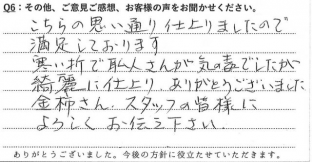 Q6：その他、ご意見ご感想、お客様の声をお聞かせください。
こちらの思い通り仕上りましたので
満足しております
寒い折で職人さんが気の毒でしたが
綺麗に仕上り、ありがとうございました
金柿さん、スタッフの皆様に
よろしくお伝え下さい。
ありがとうございました。今後の方針に役立たせていただきます。